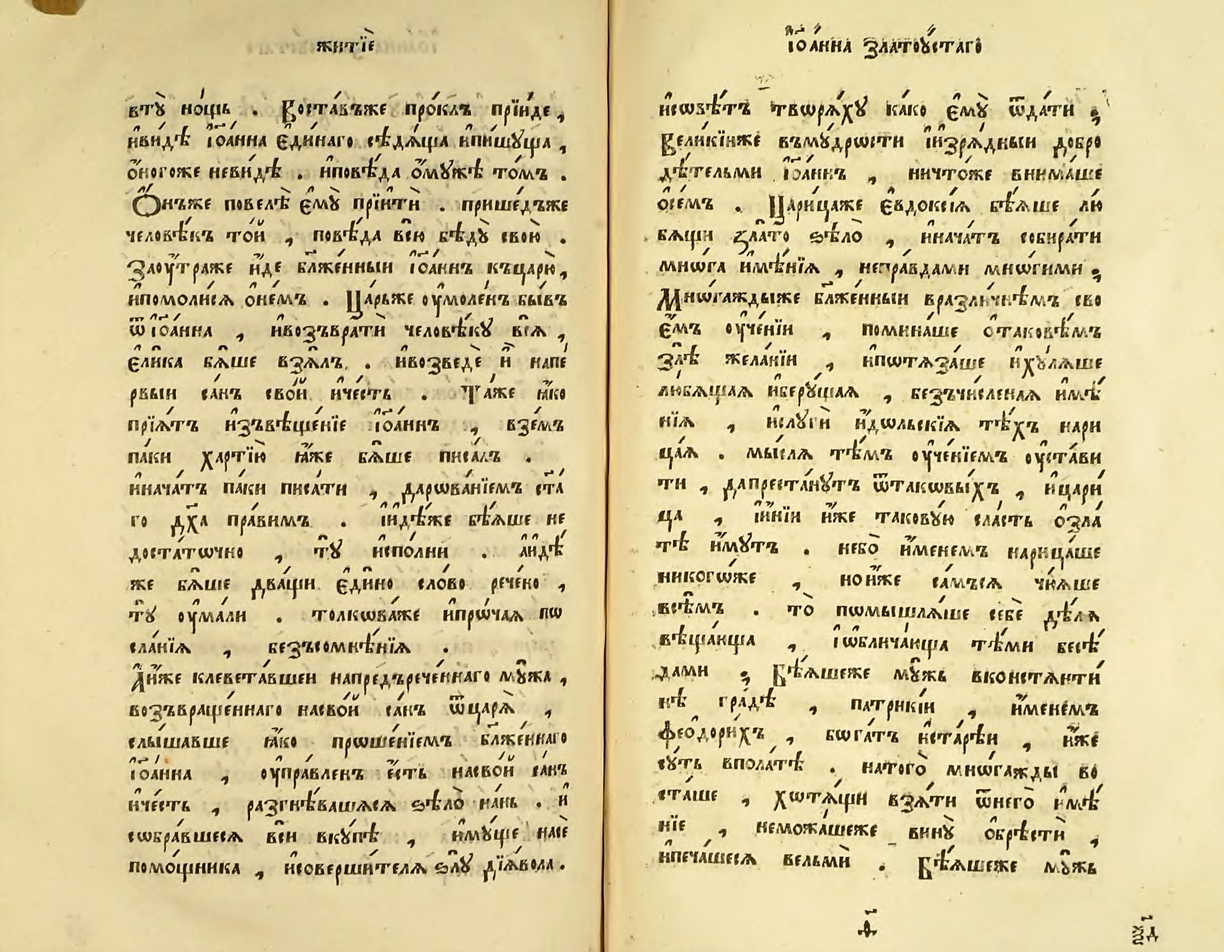 житїе
втꙋ̀ но́щь . Воста́въже про́клъ прїи́де ,
и҆ви́дѣ і҆ѡа́нна є҆ди́наго сѣдѧ́ща и҆пи́шꙋща ,
о҆́ногоже неви́дѣ . и҆повѣ́да о҆мꙋ́жѣ то́мъ .
Ѻ҆́нъже повелѣ̀ є҆мꙋ̀ прїитѝ . прише́дъже
человѣ́къ то́й , повѣ́да всю̀ бѣдꙋ̀ свою̀ .
Заоу҆́траже и҆́де бл҃же́нныи і҆ѡа́ннъ къцарю̀ ,
и҆помоли́сѧ ѻ҆не́мъ . Ца́рьже оу҆моле́нъ бы́въ
ѿі҆ѡа́нна , и҆возъвратѝ человѣ́кꙋ всѧ̀ ,
є҆ли́ка бѧ́ше взѧ́лъ . и҆возведѐ и҆̀ напе
рвыи са́нъ сво́й и҆че́сть . Та́же ꙗ҆́ко
прїѧ́тъ и҆зъвѣще́нїе і҆ѡа́ннъ , взе́мъ
па́ки ха́ртїю ꙗ҆́же бѧ́ше писа́лъ .
и҆нача́тъ па́ки писа́ти , дарѡва́нїемъ ст҃а
го дх҃а пра́вимъ . і҆и҆дѣ́же бѣ́ѧше не
доста́тѡчно , тꙋ̀ и҆спо́лни . а҆и҆дѣ́
же бѧ́ше два́щи є҆ди́но сло́во рече́но ,
тꙋ̀ оу҆ма́ли . толкѡва́же и҆прѡ́чаѧ пѡ
сла́нїѧ , безъсомнѣ́нїѧ .
А҆и҆́же клевета́вшеи напредърече́ннаго мꙋ́жа ,
возъвраще́ннаго насво́й са́нъ ѿцарѧ̀ ,
слы́шавше ꙗ҆́ко прѡше́нїемъ бл҃же́ннаго
і҆ѡа́нна , оу҆пра́вленъ є҆́сть насво́й са́нъ
и҆че́сть , разгнѣ́вашасѧ ѕѣлѡ̀ на́нь . и҆
сѡбра́вшесѧ всѝ вкꙋ́пѣ , и҆мꙋ́ще насѐ
помо́щника , и҆соверши́телѧ ѕлꙋ̀ дїѧ́вола .
І҆ѡа́нна Златоꙋ́стаго
и҆совѣ́тъ творѧ́хꙋ ка́ко є҆мꙋ̀ ѿда́ти ;
Вели́кїиже въмꙋ́дрости і҆изрѧ́дныи добро
дѣ́тельми і҆ѡа́ннъ , ничто́же внима́ше
ѻ҆се́мъ . Цари́цаже є҆вдоксі́ѧ бѣ́ѧше лю
бѧ́щи зла́то ѕѣлѡ̀ , и҆нача́тъ собира́ти
мнѡ́га и҆мѣ́нїѧ , непра́вдами мнѡ́гими ;
Мнѡ́гаждыже бл҃же́нныи вразли́чнѣмъ сво
є҆́мъ оу҆че́нїи , помина́ше ѻ҆тако́вѣмъ
злѣ̀ жела́нїи , и҆пѡтѧза́ше и҆хꙋлѧ́ше
лю́бѧщаѧ и҆берꙋ́щаѧ , безъчи́сленаѧ и҆мѣ́
нїѧ , и҆слꙋгѝ и҆́дѡльскїѧ тѣ́хъ нари
ца́ѧ . мы́слѧ тѣ́мъ оу҆че́нїемъ оу҆ста́ви
ти , дапреста́нꙋтъ ѿтакѡвы́хъ , и҆цари́
ца , і҆и҆ні́и и҆́же такову́ю сла́сть ѻ҆зла́
тѣ и҆́мꙋтъ . небо̀ и҆́менемъ нарица́ше
никогѡ́же , нои҆́же са́мъсѧ чи́ѧше
всѣ́мъ . то̀ пѡмышлѧ́ше себѐ дѣ́лѧ
вѣща́юща , і҆ѡблича́юща тѣ́ми бесѣ́
дами ; Бѣ́ѧшеже мꙋ́жь вконстѧнти́
нѣ гра́дѣ , патри́кїи , и҆́менемъ
феодори́хъ , бѡга́тъ и҆ста́рѣи , и҆́же
сꙋ́ть впола́тѣ . на́того мнѡ́гажды во
ста́ше , хѡтѧ́щи взѧ́ти ѿнего̀ и҆мѣ́
нїе , неможа́шеже винꙋ̀ ѻ҆брѣ́сти ,
и҆печа́шесѧ вельмѝ . Бѣ́ѧшеже мꙋ́жь